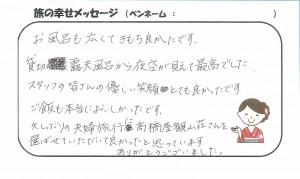 旅の幸せメッセージ（ペンネーム：　　　　）
お風呂も広くてきもち良かったです。
貸切露天風呂から夜空が見えて最高でした
スタッフの皆さんの優しい笑顔とても良かったです
ご飯も本当においしかったです。
久しぶりの夫婦旅行高橋屋観山荘さんを
選ばせていただいて良かったと思っています
ありがとうございました。